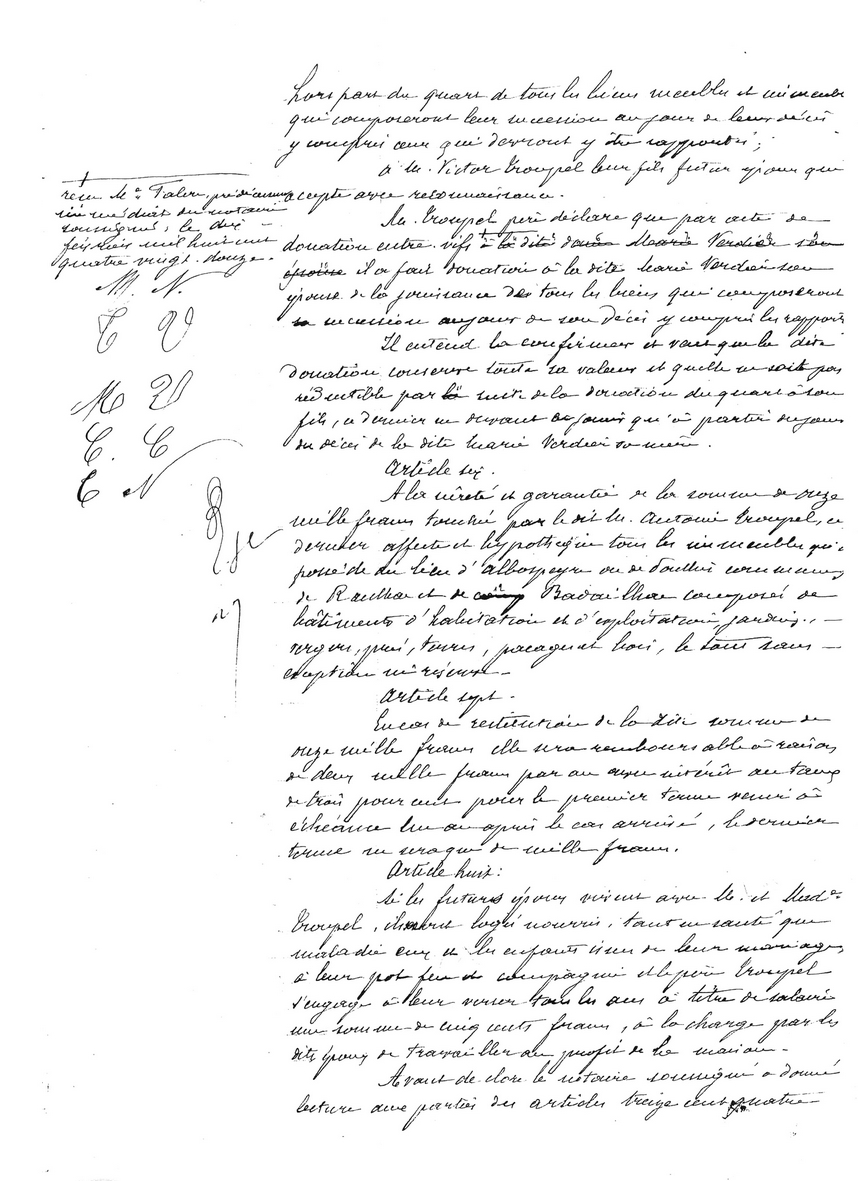 hors part du quart de tous les biens meubles et immeubl
qui composeront leur succession au jour de leurs décès
y compris ceux qui devront y être rapportés ;
à M. Victor Troupel leur fils futur époux qui
accepte avec reconnaissance.
M. Troupel père déclare que par acte de
donation entre vifs + à la dite dame Marie Verdier son
épouse il a fait donation à la dite Marie Verdier son
épouse de la jouissance de tous les biens qui composeront
sa succession au jour de son décès y compris les rapports
Il entend la confirmer et veut que la dite
donation conserve toute sa valeur et qu'elle ne soit pas
réductible par la suite de la donation du quart à son
fils, ce dernier ne devant qu'à partir du jour
du décès de la dite Marie Verdier sa mère.
Article six.
A la sûreté et garantie de la somme de onze
mille francs touchée par le dit M. Antoine Troupel, ce
dernier affecte et hypothèque tous les immeubles qu'il
possède au lieu d'Albospeyre ou de communes
de Raulhac et de Badailhac composés de
bâtiments d'habitation et d'exploitation, jardins, —
vergers, prés, terres, pacages et bois, le tout sans —
exception ni réserve —
Article sept.
En cas de restitution de la dite somme de
onze mille francs elle sera remboursable à raison
de deux mille francs par an avec intérêt au taux
de trois pour cent pour le premier terme venir à
échéance un an après le cas arrivé, le dernier
terme ne sera que de mille francs.
Article huit :
Si les futurs époux vivent avec M. et Mad^e
Troupel, ils seront logés nourris, tant en santé que
maladie eux et les enfants issus de leur mariage,
à leur pot feu et compagnie et le père Troupel
s'engage à leur verser tous les ans à titre de salaire
une somme de cinq cents francs, à la charge par les
dits époux de travailler au profit de la maison —
Avant de clore le notaire soussigné a donné
lecture aux parties des articles treize cent quatre —
+
reçu M^e prédécesseur
immédiat du notaire
soussigné, le dix —
février mil huit cent
quatre vingt-douze —
M. N.
T V
M V
C. C
C N